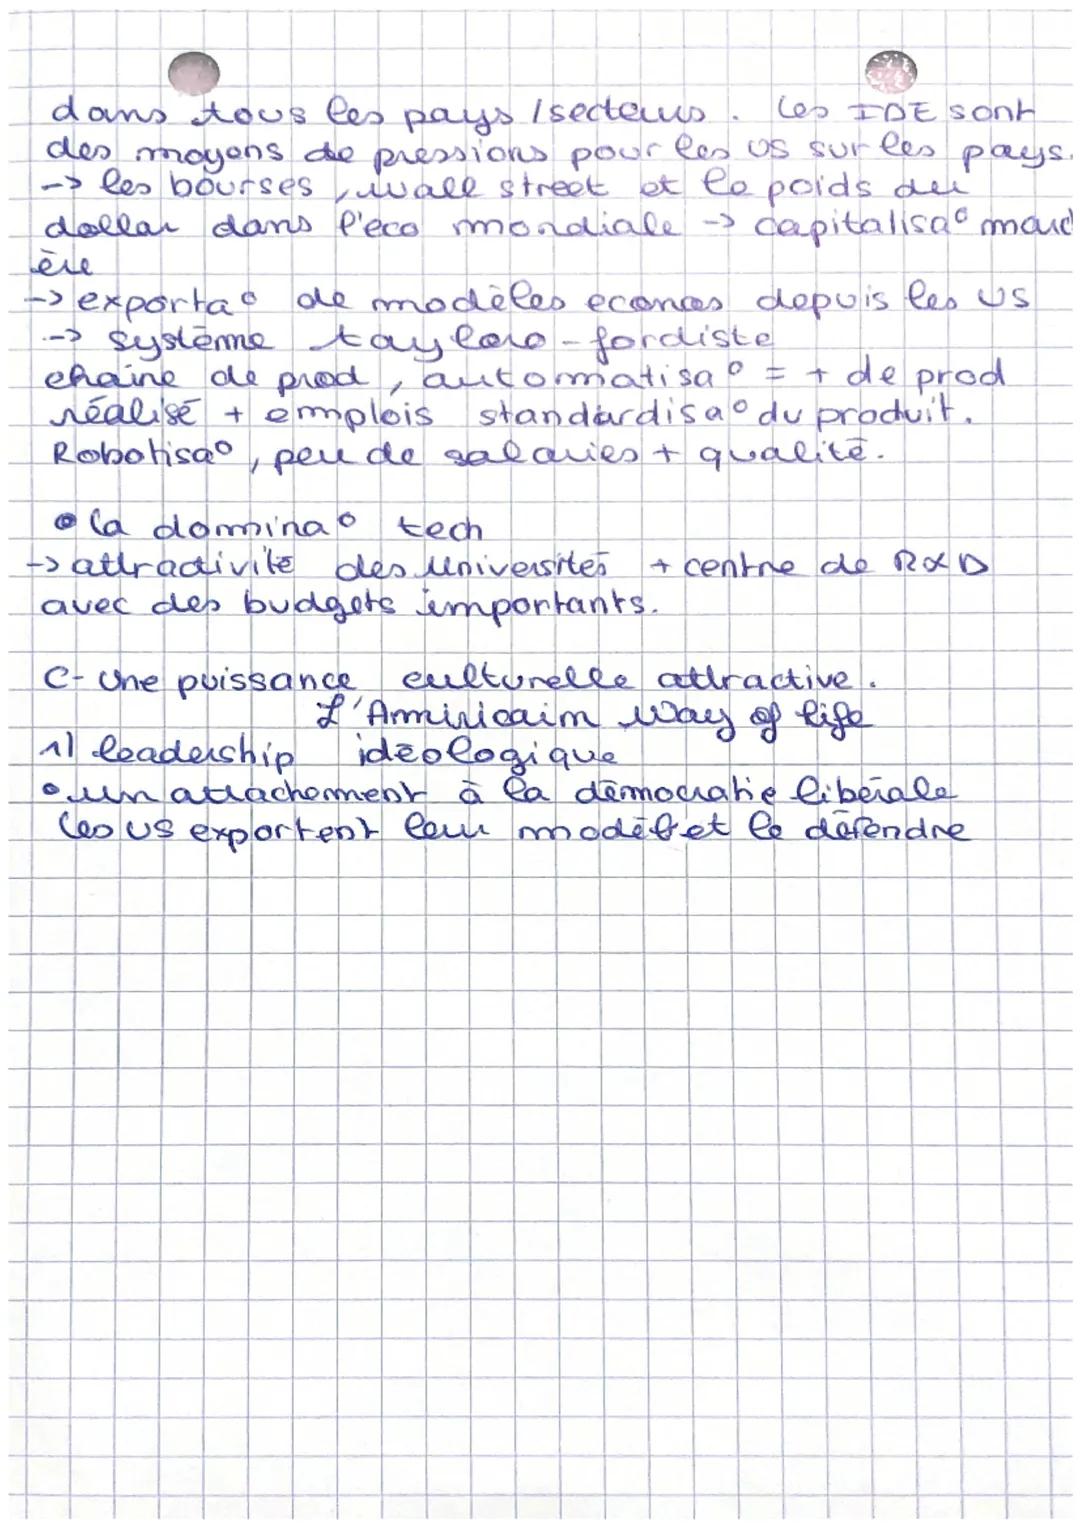 dans tous les pays / secteurs. Les IDE sont
des moyens de pressions pour les US sur les pays.
-> les bourses, wall street et le poids du
dollar dans l'eco mondiale -> capitalisa° bourd
ère
-> exporta° de modèles econos depuis les US
-> système tayloro-fordiste
chaîne de prod, automatisa° = + de prod
réalisé + emplois standardisa° du produit.
Robotisa°, peu de salariés + qualité.
• la domina° tech
-> attractivité des Universités + centre de R&D
avec des budgets importants.
C- Une puissance culturelle attractive.
L'Amiricain Way of life
1) leadership idéologique
• un attachement à la démocratie libérale
Les US exportent leur modèl et le défendre